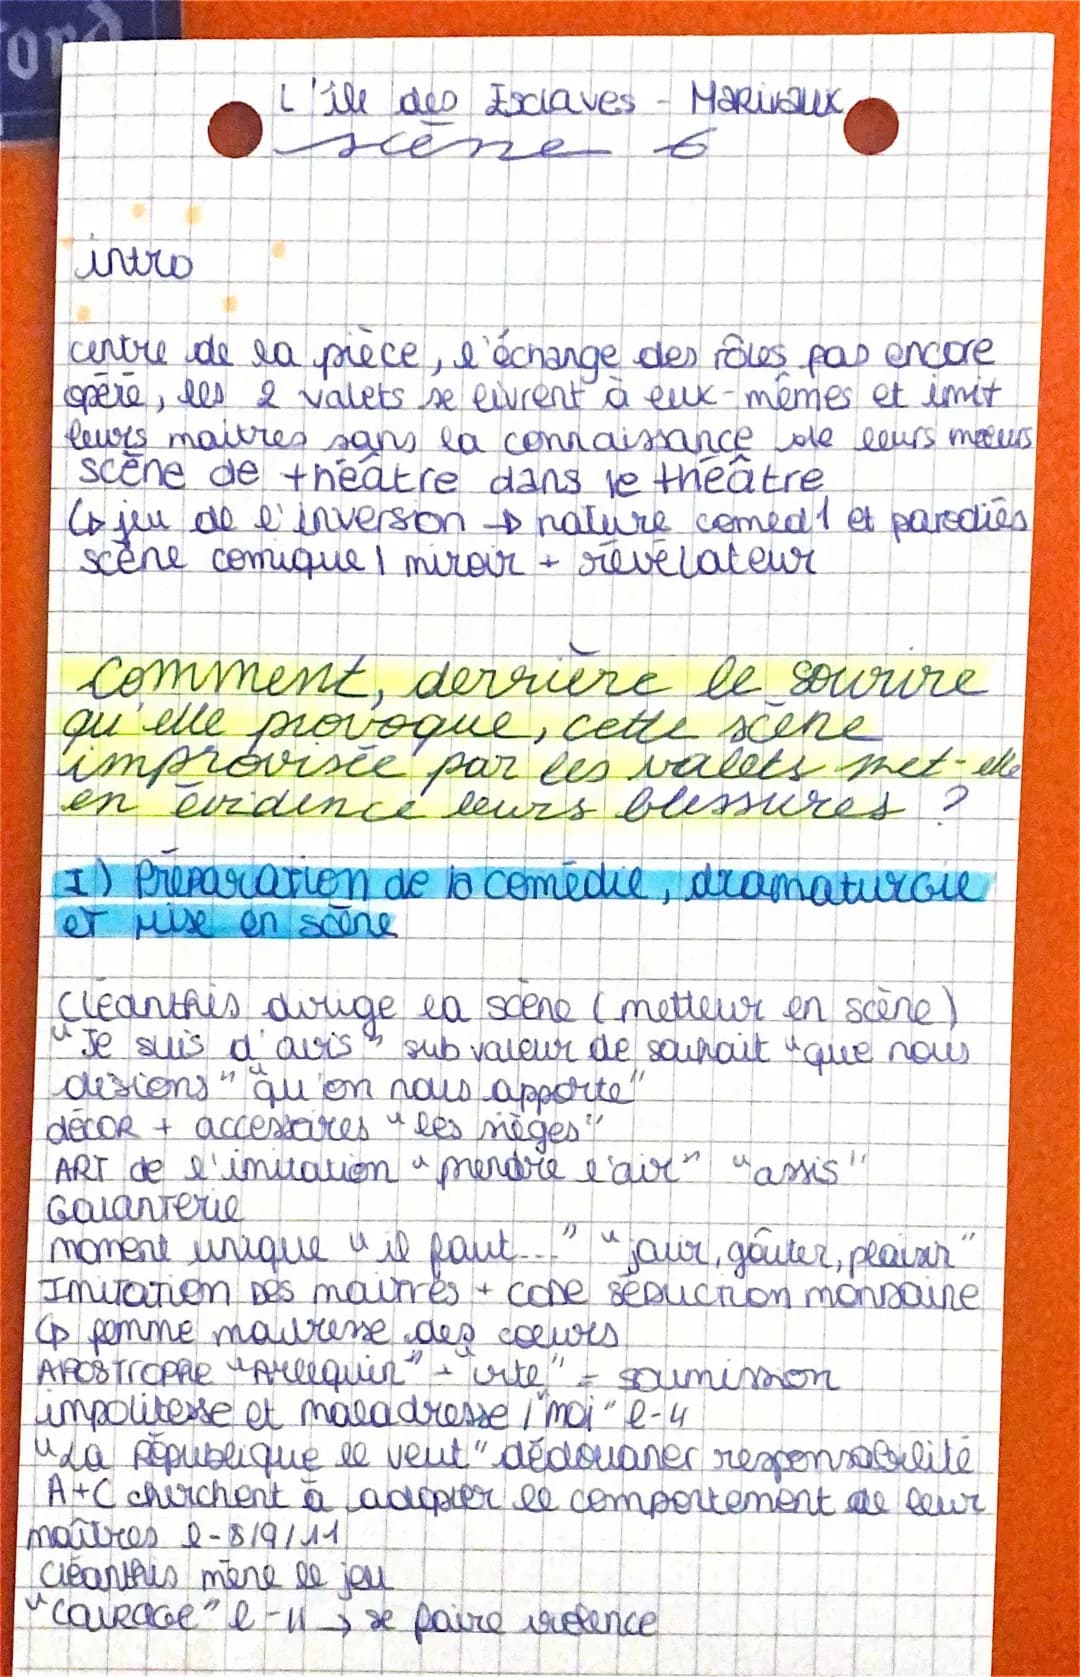 ord
L'île des Esclaves - Marivaux
scène 6
intro
centre de la pièce, l'échange des rôles pas encore
opéré, les 2 valets se livrent à eux-mêmes et imit
leurs maitres sans la connaissance de leurs mœurs
scène de théâtre dans le théâtre
↳ jeu de l'inversion → nature comed1 et parodiés
scène comique / miroir + révélateur
Comment, derrière le sourire
qu'elle provoque, cette scène
improvisée par les valets met-elle
en évidence leurs blessures ?
I) Préparation de la comédie, dramaturgie
et mise en scène
Cléanthis dirige la scène (metteur en scène)
"Je suis d'avis" sub valeur de souhait "que nous
disions" "qu'on nous apporte"
décor + accessoires "les sièges"
ART de l'imitation "prendre l'air" "assis"
Galanterie
moment unique "il faut..." "jouir, goûter, plaisir"
Imitation des maitres + code séduction mondaine
↳ femme maitresse des coeurs
APOSTROPHE "Arlequin" + "vite" = soumission
impolitesse et maladresse / "moi" l-4
"La République le veut" dédouaner responsabilité
A+C cherchent à adopter le comportement de leur
maîtres l-8/9/11
Cléanthis mène le jeu
"courage" l-11 → se faire violence